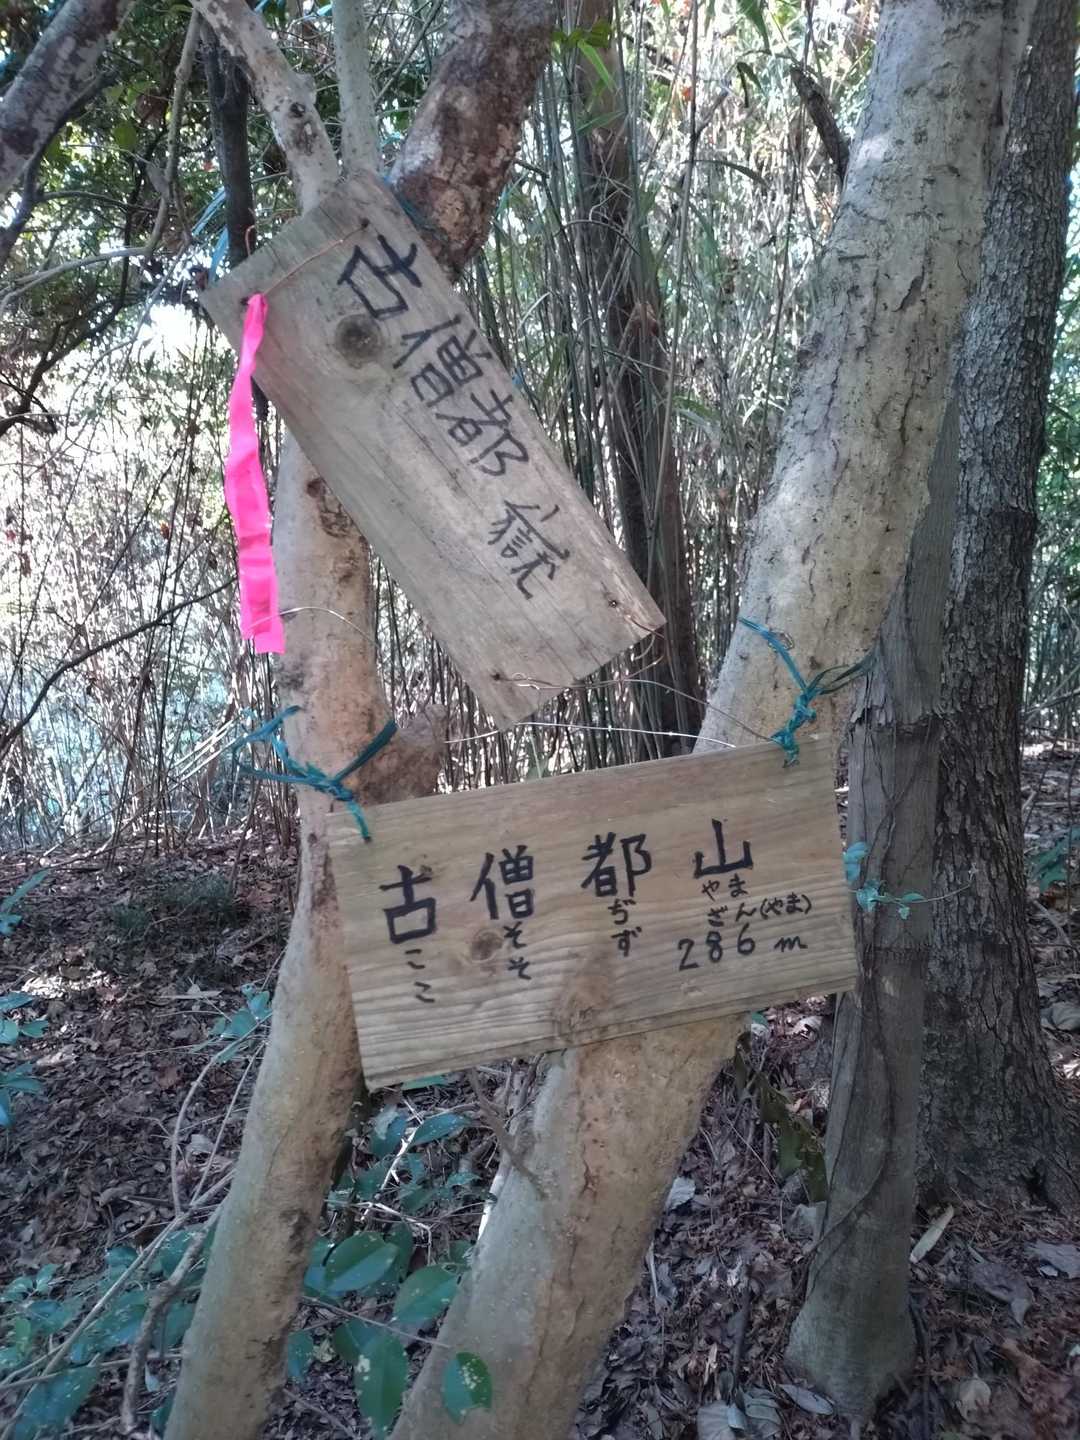 古僧都嶽
古僧都山
こそぢやま
こそずざん(やま)
286m